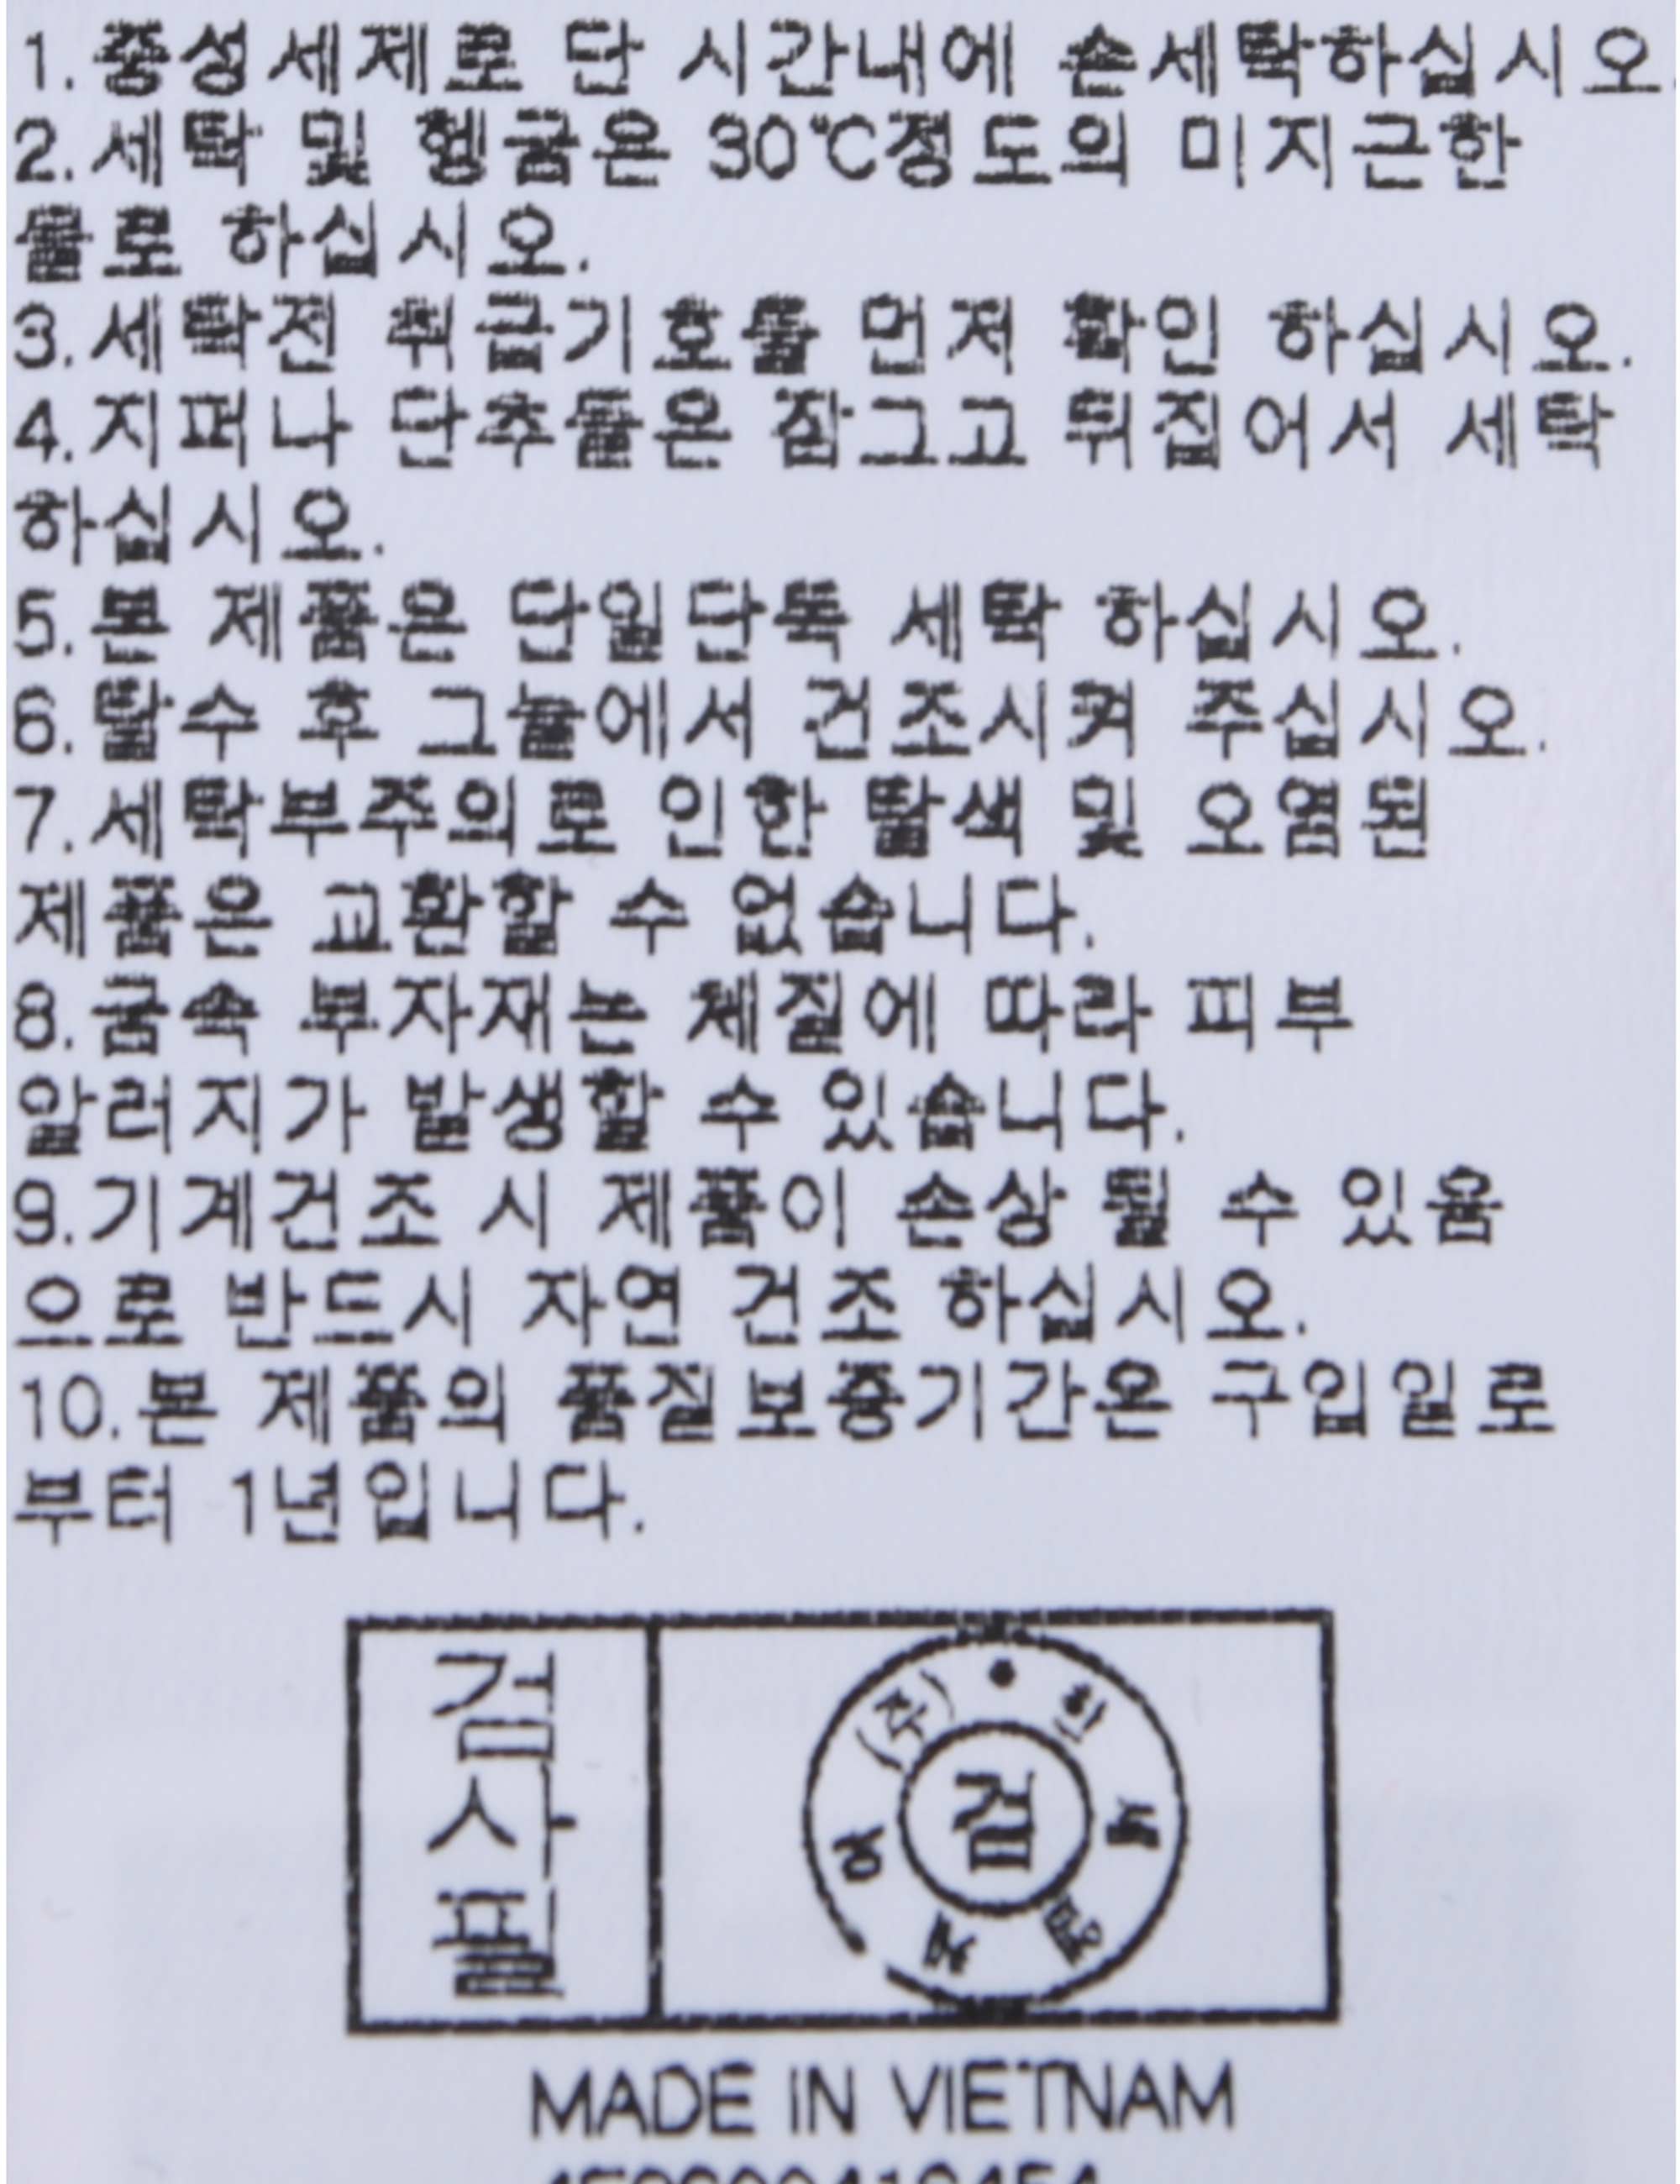 1.중성세제로 단 시간내에 손세탁하십시오.
2.세탁 및 헹굼은 30℃정도의 미지근한
물로 하십시오.
3.세탁전 취급기호를 먼저 확인 하십시오.
4.지퍼나 단추들은 잠그고 뒤집어서 세탁
하십시오.
5.본 제품은 단일단독 세탁 하십시오.
6.탈수 후 그늘에서 건조시켜 주십시오.
7.세탁부주의로 인한 탈색 및 오염된
제품은 교환할 수 없습니다.
8.금속 부자재는 체질에 따라 피부
알러지가 발생할 수 있습니다.
9.기계건조 시 제품이 손상 될 수 있음
으로 반드시 자연 건조 하십시오.
10.본 제품의 품질보증기간은 구입일로
부터 1년입니다.
검사필
검
(주)
MADE IN VIETNAM